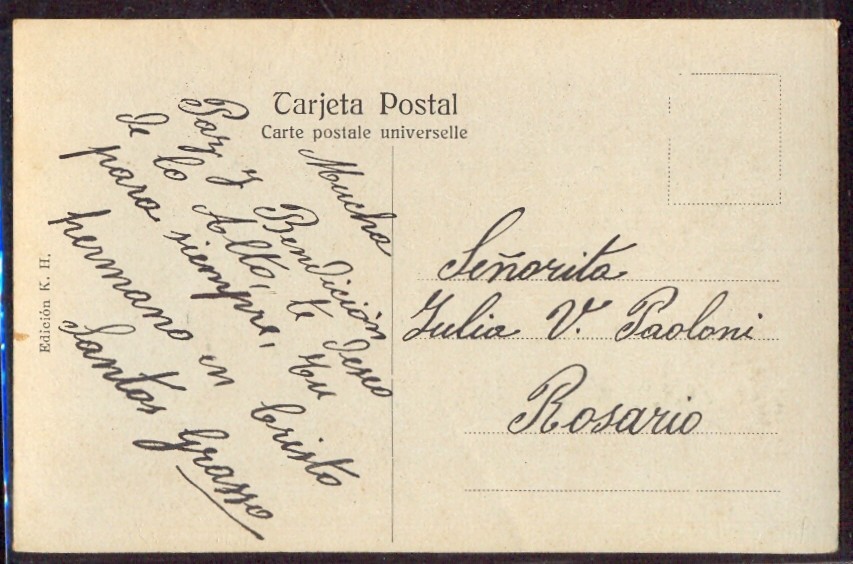 Tarjeta Postal
Carte postale universelle
Mucha
Paz y Bendición
de lo Alto, te deseo
para siempre, tu
hermano en Cristo
Santos Grasso
Señorita
Julia V. Paoloni
Rosario
Edición K. H.